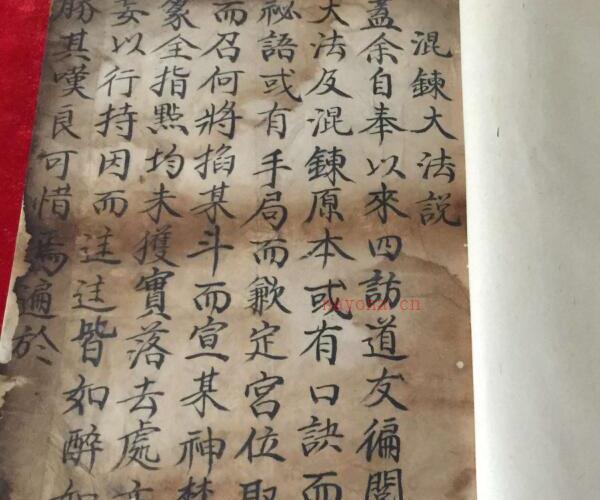 混鍊大法説
蓋余自奉以來四訪道友徧閲
大法及混鍊原本或有口訣而
祕語或有手局而歉定宮位取
而召何將掐某斗而宣某神
篆全指㸃均未獲實落去處
妄以行持因而迋迋皆如醉如
勝其嘆良可惜焉諞於